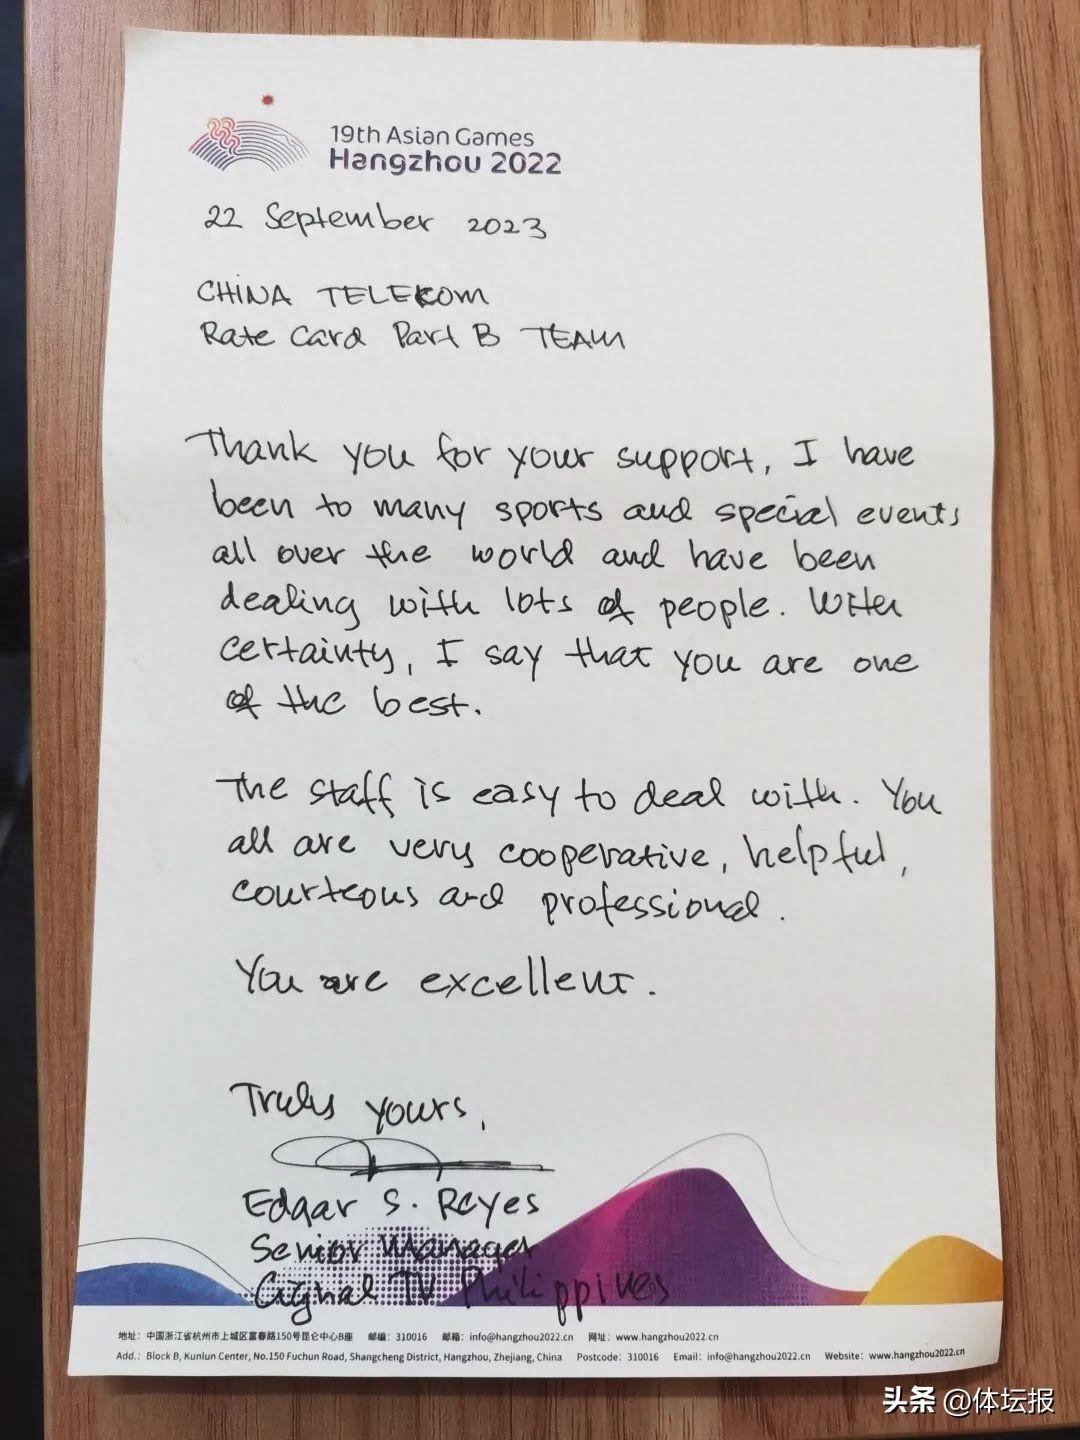 19th Asian Games
Hangzhou 2022
22 September 2023
CHINA TELEKOM
Rate Card Part B TEAM
Thank you for your support, I have
been to many sports and special events
all over the world and have been
dealing with lots of people. With
certainty, I say that you are one
of the best.
The staff is easy to deal with. You
all are very cooperative, helpful,
courteous and professional.
You are excellent.
Truly yours,
Edgar S. Reyes
Senior Manager
Cignal TV Philippines
地址：中国浙江省杭州市上城区富春路150号昆仑中心B座 邮编：310016 邮箱：info@hangzhou2022.cn 网址：www.hangzhou2022.cn
Add.: Block B, Kunlun Center, No.150 Fuchun Road, Shangcheng District, Hangzhou, Zhejiang, China Postcode: 310016 Email: info@hangzhou2022.cn Website: www.hangzhou2022.cn
头条 @体坛报